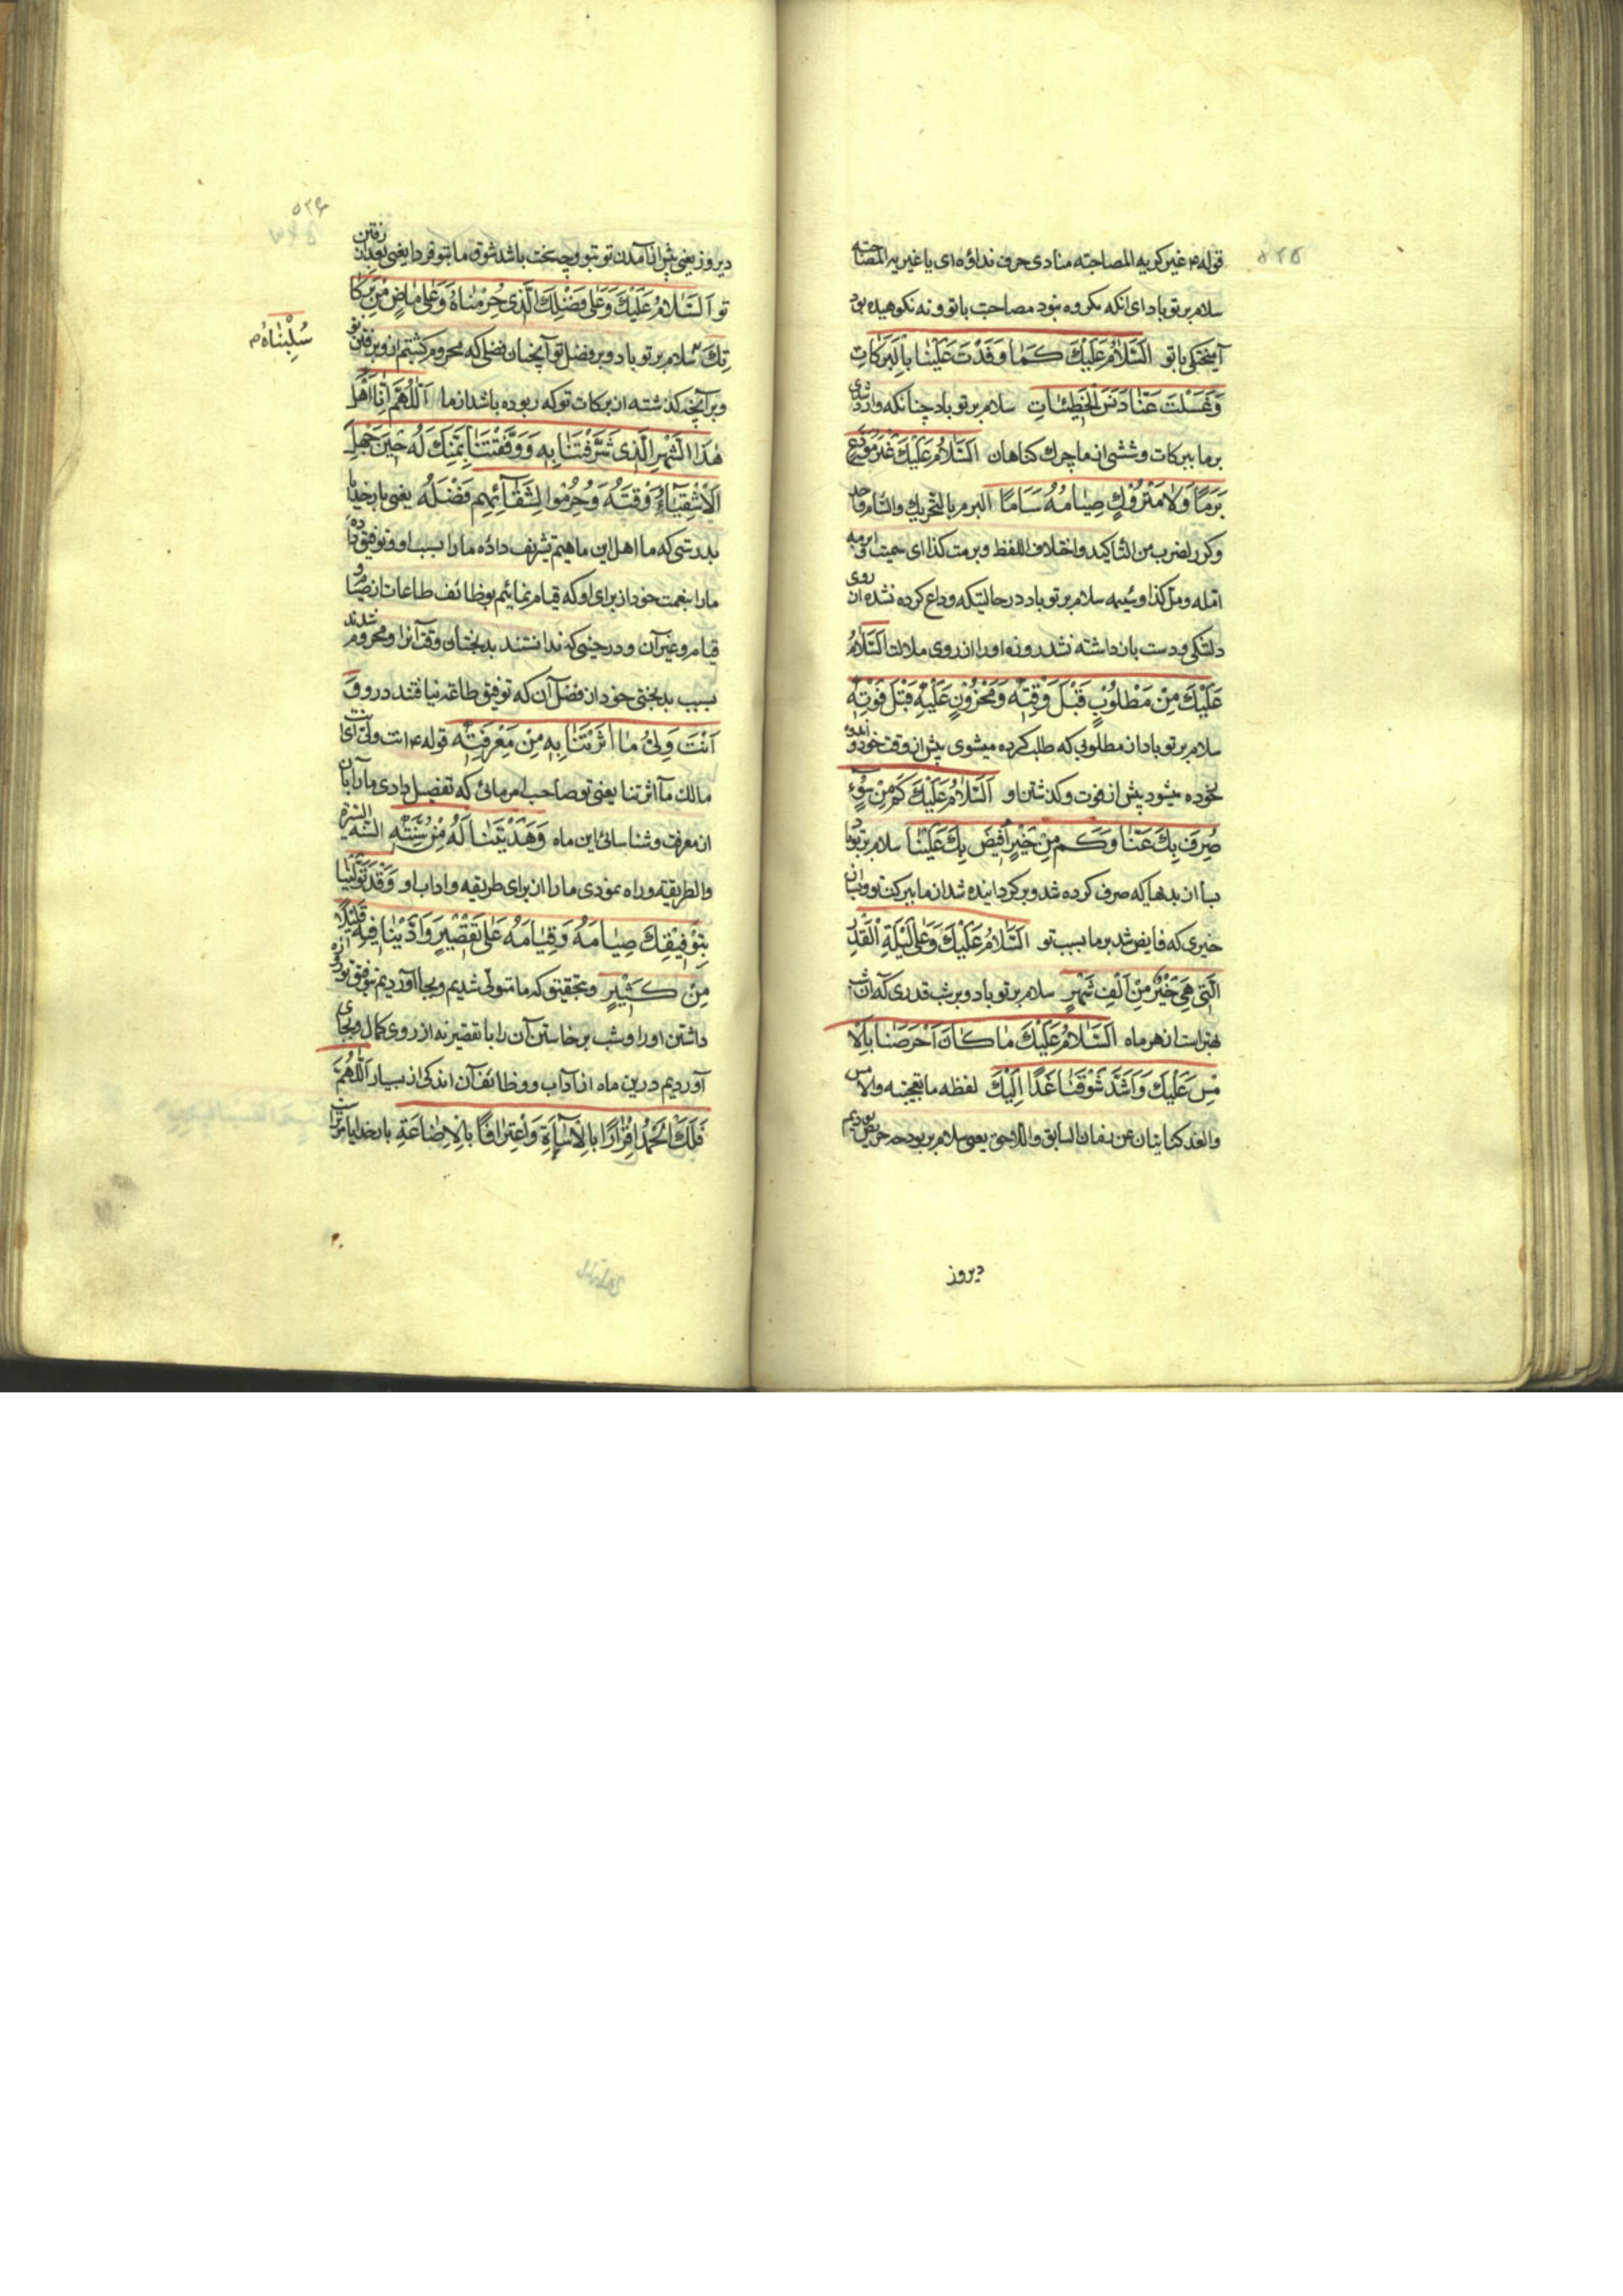 ۵۲۵
قوله ۴ غیر کریه المصاحبته منادی حرف نداؤه ای یا غیر کریه المصاحبته
سلام بر تو باد ای آنکه مکروه نبود مصاحبت با تو و نه نکوهیده بود
آمیختگی با تو اَلسَّلامُ عَلَیْكَ کَمٰا وَفَدْتَ عَلَیْنٰا بِالْبَرَکاتِ
وَغَسَلْتَ عَنّٰا دَنَسَ الْخَطیئٰاتِ سلام بر تو باد چنانکه وارد شدی
بر ما ببرکات و شستی از ما چرك کناهان اَلسَّلامُ عَلَیْكَ غَیْرَ مُوَدَّعٍ
بَرَمًا وَلٰا مَتْرُوْكٍ صِیٰامُهُ سَاَمًا البرم بالتحریك والسام واحد
وکرر لضرب من التاکید واختلاف اللفظ وبرمت کذا ای
امله ومل کذا وسئمه سلام بر تو باد در حالتیکه وداع کرده نشده از روی
دلتنکی و دست باز داشته نشد روزه او را از روی ملالت اَلسَّلامُ
عَلَیْكَ مِنْ مَطْلُوْبٍ قَبْلَ وَقْتِهٖ وَمَحْزُوْنٍ عَلَیْهِ قَبْلَ فَوْتِهٖ
سلام بر تو باد از مطلوبی که طلب کرده میشوی پیش از وقت خود و اندوه
خورده میشود پیش از فوت و کذشتن او اَلسَّلامُ عَلَیْكَ کَمْ مِنْ سُوْءٍ
صُرِفَ بِكَ عَنّٰا وَکَمْ مِنْ خَیْرٍ اُفیضَ بِكَ عَلَیْنٰا سلام بر تو باد
بسا از بدیها که صرف کرده شد و برکردانیده شد از ما ببرکت تو و بسا از
خیری که فایض شد بر ما بسبب تو اَلسَّلامُ عَلَیْكَ وَعَلٰی لَیْلَةِ الْقَدْرِ
الَّتی هِیَ خَیْرٌ مِنْ اَلْفِ شَهْرٍ سلام بر تو باد و بر شب قدری که آن شب
بهتر است از هزار ماه اَلسَّلامُ عَلَیْكَ مٰا کٰانَ اَحْرَصَنٰا بِالْاَ
مْسِ عَلَیْكَ وَاَشَدَّ شَوْقَنٰا غَدًا اِلَیْكَ لفظه ما تعجبیه والامس
والغد کنایتان عن زمان السابق واللاحق یعنی سلام بر تو باد چه حریص بودیم
دیروز
۵۲۶
دیروز یعنی پیش از آمدن تو بتو و چه سخت باشد شوق ما بتو فردا یعنی بعد از رفتن
تو اَلسَّلامُ عَلَیْكَ وَعَلٰی فَضْلِكَ الَّذی حُرِمْنٰاهُ وَعَلٰی مٰاضٍ مِنْ بَرَکٰا
تِكَ سلام بر تو باد و بر فضل تو آنچنان فضلی که محروم کشتیم از او برفتن تو
سُلِبْنٰاهُ م
و بر آنچه کذشته از برکات تو که ربوده باشد از ما اَللّٰهُمَّ اِنّٰا اَهْلُ
هٰذَا الشَّهْرِ الَّذی شَرَّفْتَنٰا بِهٖ وَوَفَّقْتَنٰا بِمَنِّكَ لَهُ حینَ جَهِلَ
الْاَشْقِیٰاۤءُ وَقْتَهُ وَحُرِمُوا لِشَقٰاۤئِهِمْ فَضْلَهُ یعنی بار خدایا
بدرستی که ما اهل این ماهیم تشریف داده ما را بسبب او و توفیق داده
ما را بنعمت خود از برای او که قیام نمائیم بوظائف طاعات از صیام و
قیام و غیر آن و در حینی که ندانستند بدبختان وقت آنرا و محروم شدند
بسبب بدبختی خود از فضل آن که توفیق طاعة نیافتند در او وَ
اَنْتَ وَلِیُّ مٰا اٰثَرْتَنٰا بِهٖ مِنْ مَعْرِفَتِهٖ قوله ۴ انت ولی ای انت
مالك ما آثرتنا یعنی تو صاحب امر مائی که تفضیل دادی ما را بآن
از معرفت و شناسائی این ماه وَهَدَیْتَنٰا لَهُ مِنْ سُنَّتِهٖ السنه السیرة
والطریقة و راه نمودی ما را از برای طریقه و آداب او وَقَدْ تَوَلَّیْنٰا
بِتَوْفیقِكَ صِیٰامَهُ وَقِیٰامَهُ عَلٰی تَقْصیرٍ وَاَدَّیْنٰا فیهِ قَلیلًا
مِنْ کَثیرٍ و بتحقیق که ما متولی شدیم و بجا آوردیم بتوفیق تو روزه
داشتن او را و شب برخاستن آن را با تقصیر نه از روی کمال و بجای
آوردیم درین ماه از آداب و وظائف آن اندکی از بسیار اَللّٰهُمَّ
فَلَكَ الْحَمْدُ اِقْرٰارًا بِالْاِسٰاۤءَةِ وَاعْتِرٰافًا بِالْاِضٰاعَةِ بار خدایا مر تراست